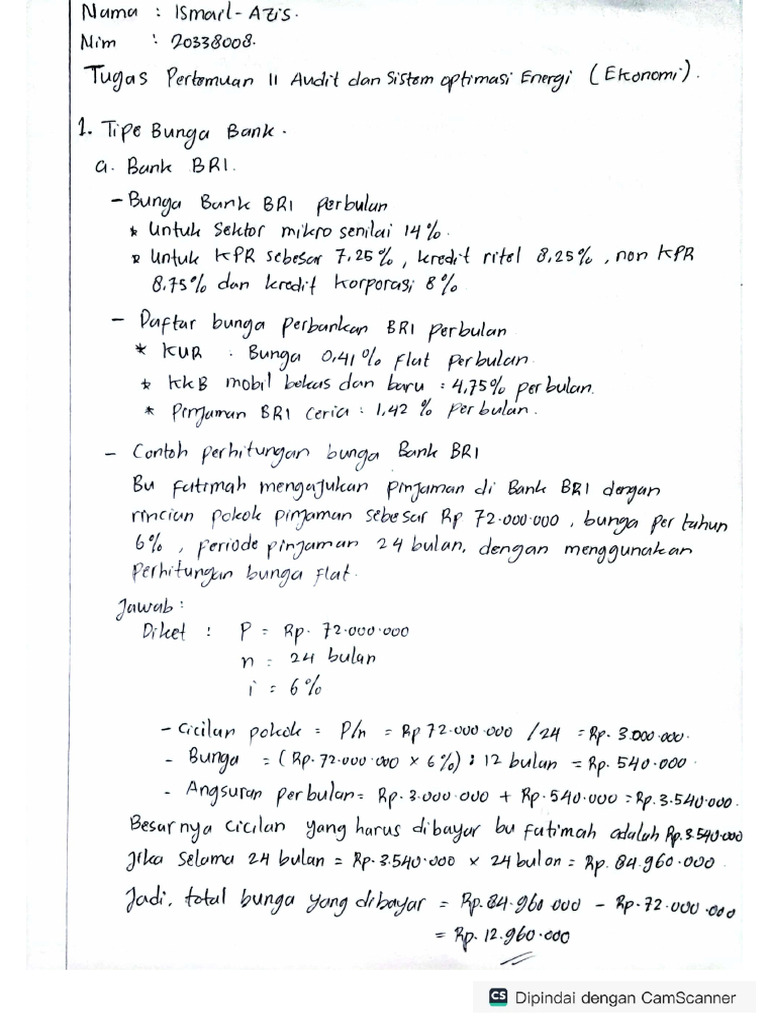 Nama : Ismail-Azis.
Nim : 20338008.
Tugas Pertemuan 11 Audit dan Sistem optimasi Energi (Ekonomi).
1. Tipe Bunga Bank.
a. Bank BRI.
- Bunga Bank BRI perbulan
* Untuk Sektor mikro senilai 14%.
* Untuk KPR sebesar 7,25%, kredit ritel 8,25%, non KPR
8,75% dan kredit korporasi 8%
- Daftar bunga perbankan BRI perbulan
* KUR : Bunga 0,41% flat perbulan.
* KKB mobil bekas dan baru : 4,75% perbulan.
* Pinjaman BRI Ceria : 1,42 % perbulan.
- Contoh perhitungan bunga Bank BRI
Bu fatimah mengajukan pinjaman di Bank BRI dengan
rincian pokok pinjaman sebesar Rp 72.000.000, bunga per tahun
6%, periode pinjaman 24 bulan, dengan menggunakan
perhitungan bunga flat.
Jawab :
Diket : P = Rp. 72.000.000
n = 24 bulan
i = 6%
- Cicilan pokok = P/n = Rp 72.000.000 /24 = Rp. 3.000.000.
- Bunga = (Rp.72.000.000 x 6%) : 12 bulan = Rp. 540.000.
- Angsuran perbulan = Rp. 3.000.000 + Rp.540.000 = Rp.3.540.000.
Besarnya cicilan yang harus dibayar bu fatimah adalah Rp.3.540.000
Jika selama 24 bulan = Rp.3.540.000 x 24 bulan = Rp. 84.960.000.
Jadi, total bunga yang dibayar = Rp.84.960.000 - Rp.72.000.000
= Rp. 12.960.000
CS Dipindai dengan CamScanner